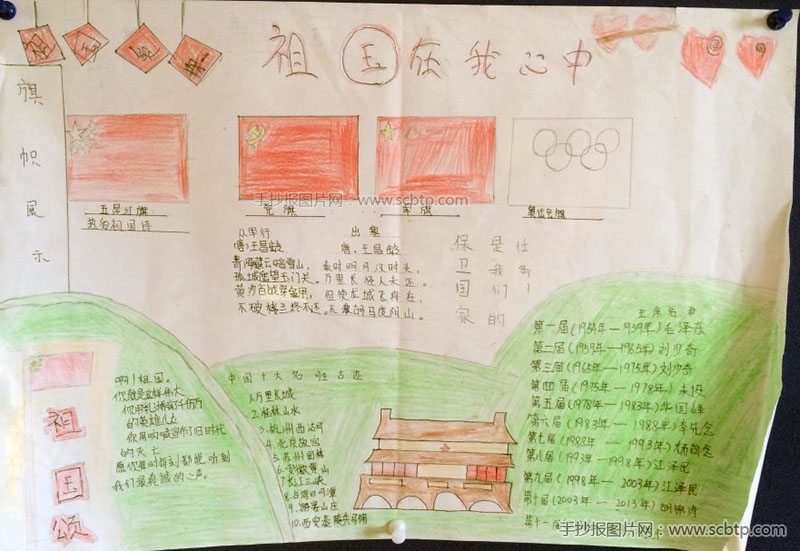 祖国颂
祖国在我心中
旗帜展示
五星红旗
党旗
军旗
奥运会旗
手抄报图片网：www.scbtp.com
从军行
唐，王昌龄
青海长云暗雪山，
孤城遥望玉门关。
黄沙百战穿金甲，
不破楼兰终不还。
出塞
唐，王昌龄
秦时明月汉时关，
万里长征人未还。
但使龙城飞将在，
不教胡马度阴山。
保卫国家
是我们的
任务！
祖国颂
啊！祖国。
你就是这样伟大
的英雄儿女
你用呐喊宣布了旧时代
的灭亡
愿你每时每刻都能听到
我们最真诚的心声。
中国十大名胜古迹
1.万里长城
2.桂林山水
3.杭州西湖
4.北京故宫
5.苏州园林
6.安徽黄山
7.长江三峡
8.台湾日月潭
9.避暑山庄
10.西安秦陵兵马俑
主席名单
第一届(1954年—1959年)毛泽东
第二届(1959年—1965年)刘少奇
第三届(1965年—1975年)刘少奇
第四届(1975年—1978年)
第五届(1978年—1983年)华国峰
第六届(1983年—1988年)李先念
第七届(1988年—1993年)杨尚昆
第八届(1993年—1998年)江泽民
第九届(1998年—2003年)江泽民
第十届(2003年—2013年)胡锦涛
第十一届
手抄报图片网：www.scbtp.com